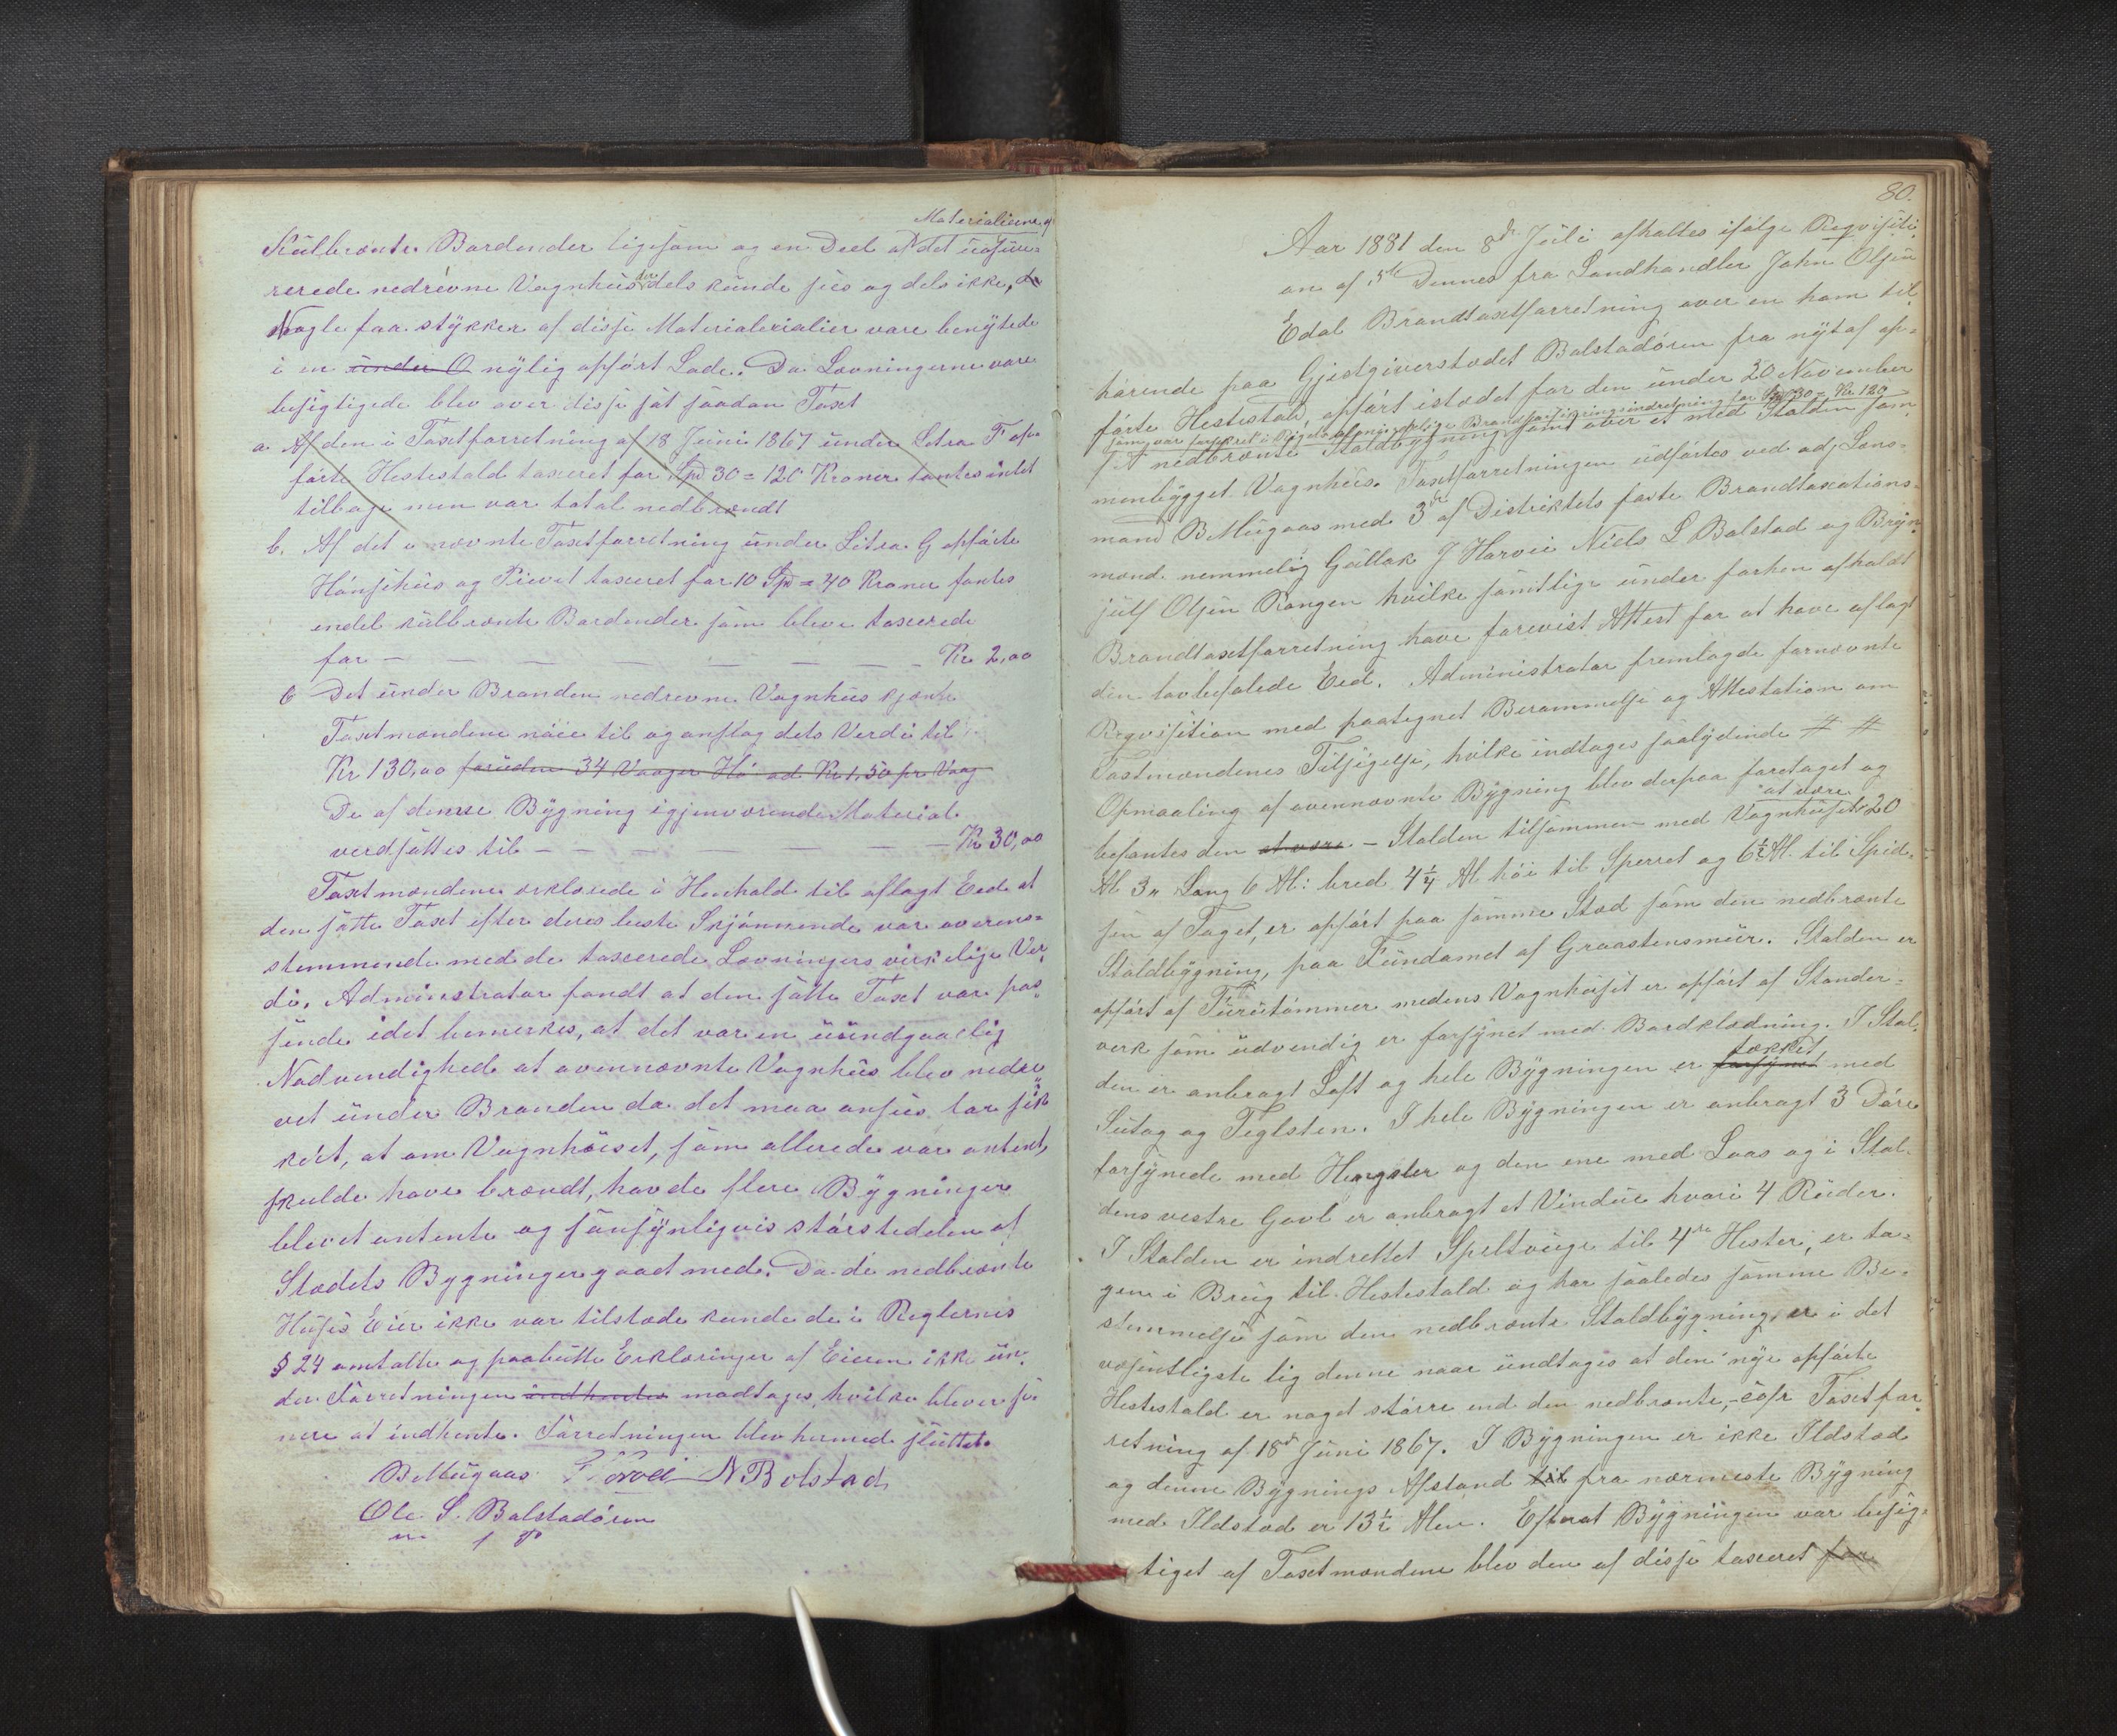 Materialierne af
Kulbrænte Bordender ligesom og en Deel af det uasu-
rerede nedrevne Vognhus der dels kunde sees og dels ikke,
Nogle faa stykker af disse Materialerialier vare benyttede
i en under O nylig opført Lade. Da Levningerne vare
besigtigede blev over disse sat saadan Taxt
a. Af den i Taxtforretning af 18 Juni 1867 under Litra F op-
førte Hestestald taxeret for Spd 30 = 120 Kroner fantes intet
tilbage men var total nedbrændt
b. Af det i nævnte Taxtforretning under Litra G opførte
Hønsehus og Privet taxeret for 10 Spd = 40 Kroner fantes
endel kulbrænte Bordender som bleve taxerede
for — — — — — — — Kr 2,00
c Det under Branden nedrevne Vognhus kjendte
Taxtmændene nøie til og anslog dets Verdi til
Kr 130,00 foruden 34 Vaager Hø ad Kr 1,50 pr Vaag
De af denne Bygning igjenværende Material
verdsattes til — — — — — — Kr 30,00
Taxtmændene erklærede i Henhold til aflagt Eed at
den satte Taxt efter deres beste Skjønnende var overens-
stemmende med de taxerede Levningers virkelige Ver-
di. Administrator fandt at den satte Taxt var pas-
sende idet bemerkes, at det var en uundgaaelig
Nødvendighed at ovennævnte Vognhus blev nedre-
vet under Branden da det maa ansees for sik-
kert, at om Vognhuset, som allerede var antent,
skulde have brændt, havde flere Bygninger
blevet antente og sansynligvis størstedelen af
Stedets Bygninger gaaet med. Da de nedbrænte
Huses Eier ikke var tilstede kunde de i Reglernes
§ 24 omtalte og paabudte Erklæringer af Eieren ikke un-
der Forretningen indhentes modtages, hvilke blever se-
nere at indhente. Forretningen blev hermed sluttet.
B Mügaas J Horvei N Bolstad
Ole S. Bolstadøren
m f P
80.
Aar 1881 den 8de Juli afholdtes ifølge Reqvisiti-
on af 5te Dennes fra Landhandler John Olsen
Edal Brandtaxtforretning over en ham til
hørende paa Gjestgiverstedet Bolstadøren fra nyt af op-
førte Hestestald, opført istedet for den under 20 November
som var forsikret i Rigets almindelige Brandforsikringsindretning for Spd 30 = Kr 120
f A nedbrænte Staldbygning samt over et med Stalden sam-
menbygget Vognhus. Taxtforretningen udførtes ved adj Lens-
mand B Mügaas med 3de af Distriktets faste Brandtaxations-
mænd nemmelig Gullak J Horvei Niels L Bolstad og Bryn-
julf Olsen Rongen hvilke samtlige under forhen afholdt
Brandtaxtforretning have forevist Attest for at have aflagt
den lovbefalede Eed. Administrator fremlagde fornævnte
Reqvisition med paategnet Berammelse og Attestation om
Taxtmændenes Tilsigelse, hvilke indtages saalydende # #
Opmaaling af ovennævnte Bygning blev derpaa foretaget og
at være
befantes den at være – Stalden tilsammen med Vognhuset 20
Al 3" Lang 6 Al: bred 4¼ Al høi til Sperret og 6½ Al. til Spid-
sen af Taget, er opført paa samme Sted som den nedbrænte
Staldbygning, paa Fundamet af Graastensmur. Stalden er
opført af Furutømmer medens Vognhuset er opført af Stender-
verk som udvendig er forsynet med Bordklædning. I Stal-
den er anbragt Loft og hele Bygningen er forsynet tækket med
Sutag og Teglsten. I hele Bygningen er anbragt 3 Døre
forsynede med Hengsler og den ene med Laas og i Stal-
dens vestre Gavl er anbragt et Vindue hvori 4 Ruder.
I Stalden er indrettet Speltouge til 4re Hester, er ta-
gen i Brug til Hestestald og har saaledes samme Be-
stemmelse som den nedbrænte Staldbygning, er i det
væsentligste lig denne naar undtages at den nye opførte
Hestestald er noget større end den nedbrænte, – cofr Taxtfor-
retning af 18de Juni 1867. I Bygningen er ikke Ildsted
og denne Bygnings Afstand til fra nærmeste Bygning
med Ildsted er 13½ Alen. Efterat Bygningen var besig-
tiget af Taxtmændene blev den af disse taxeret for